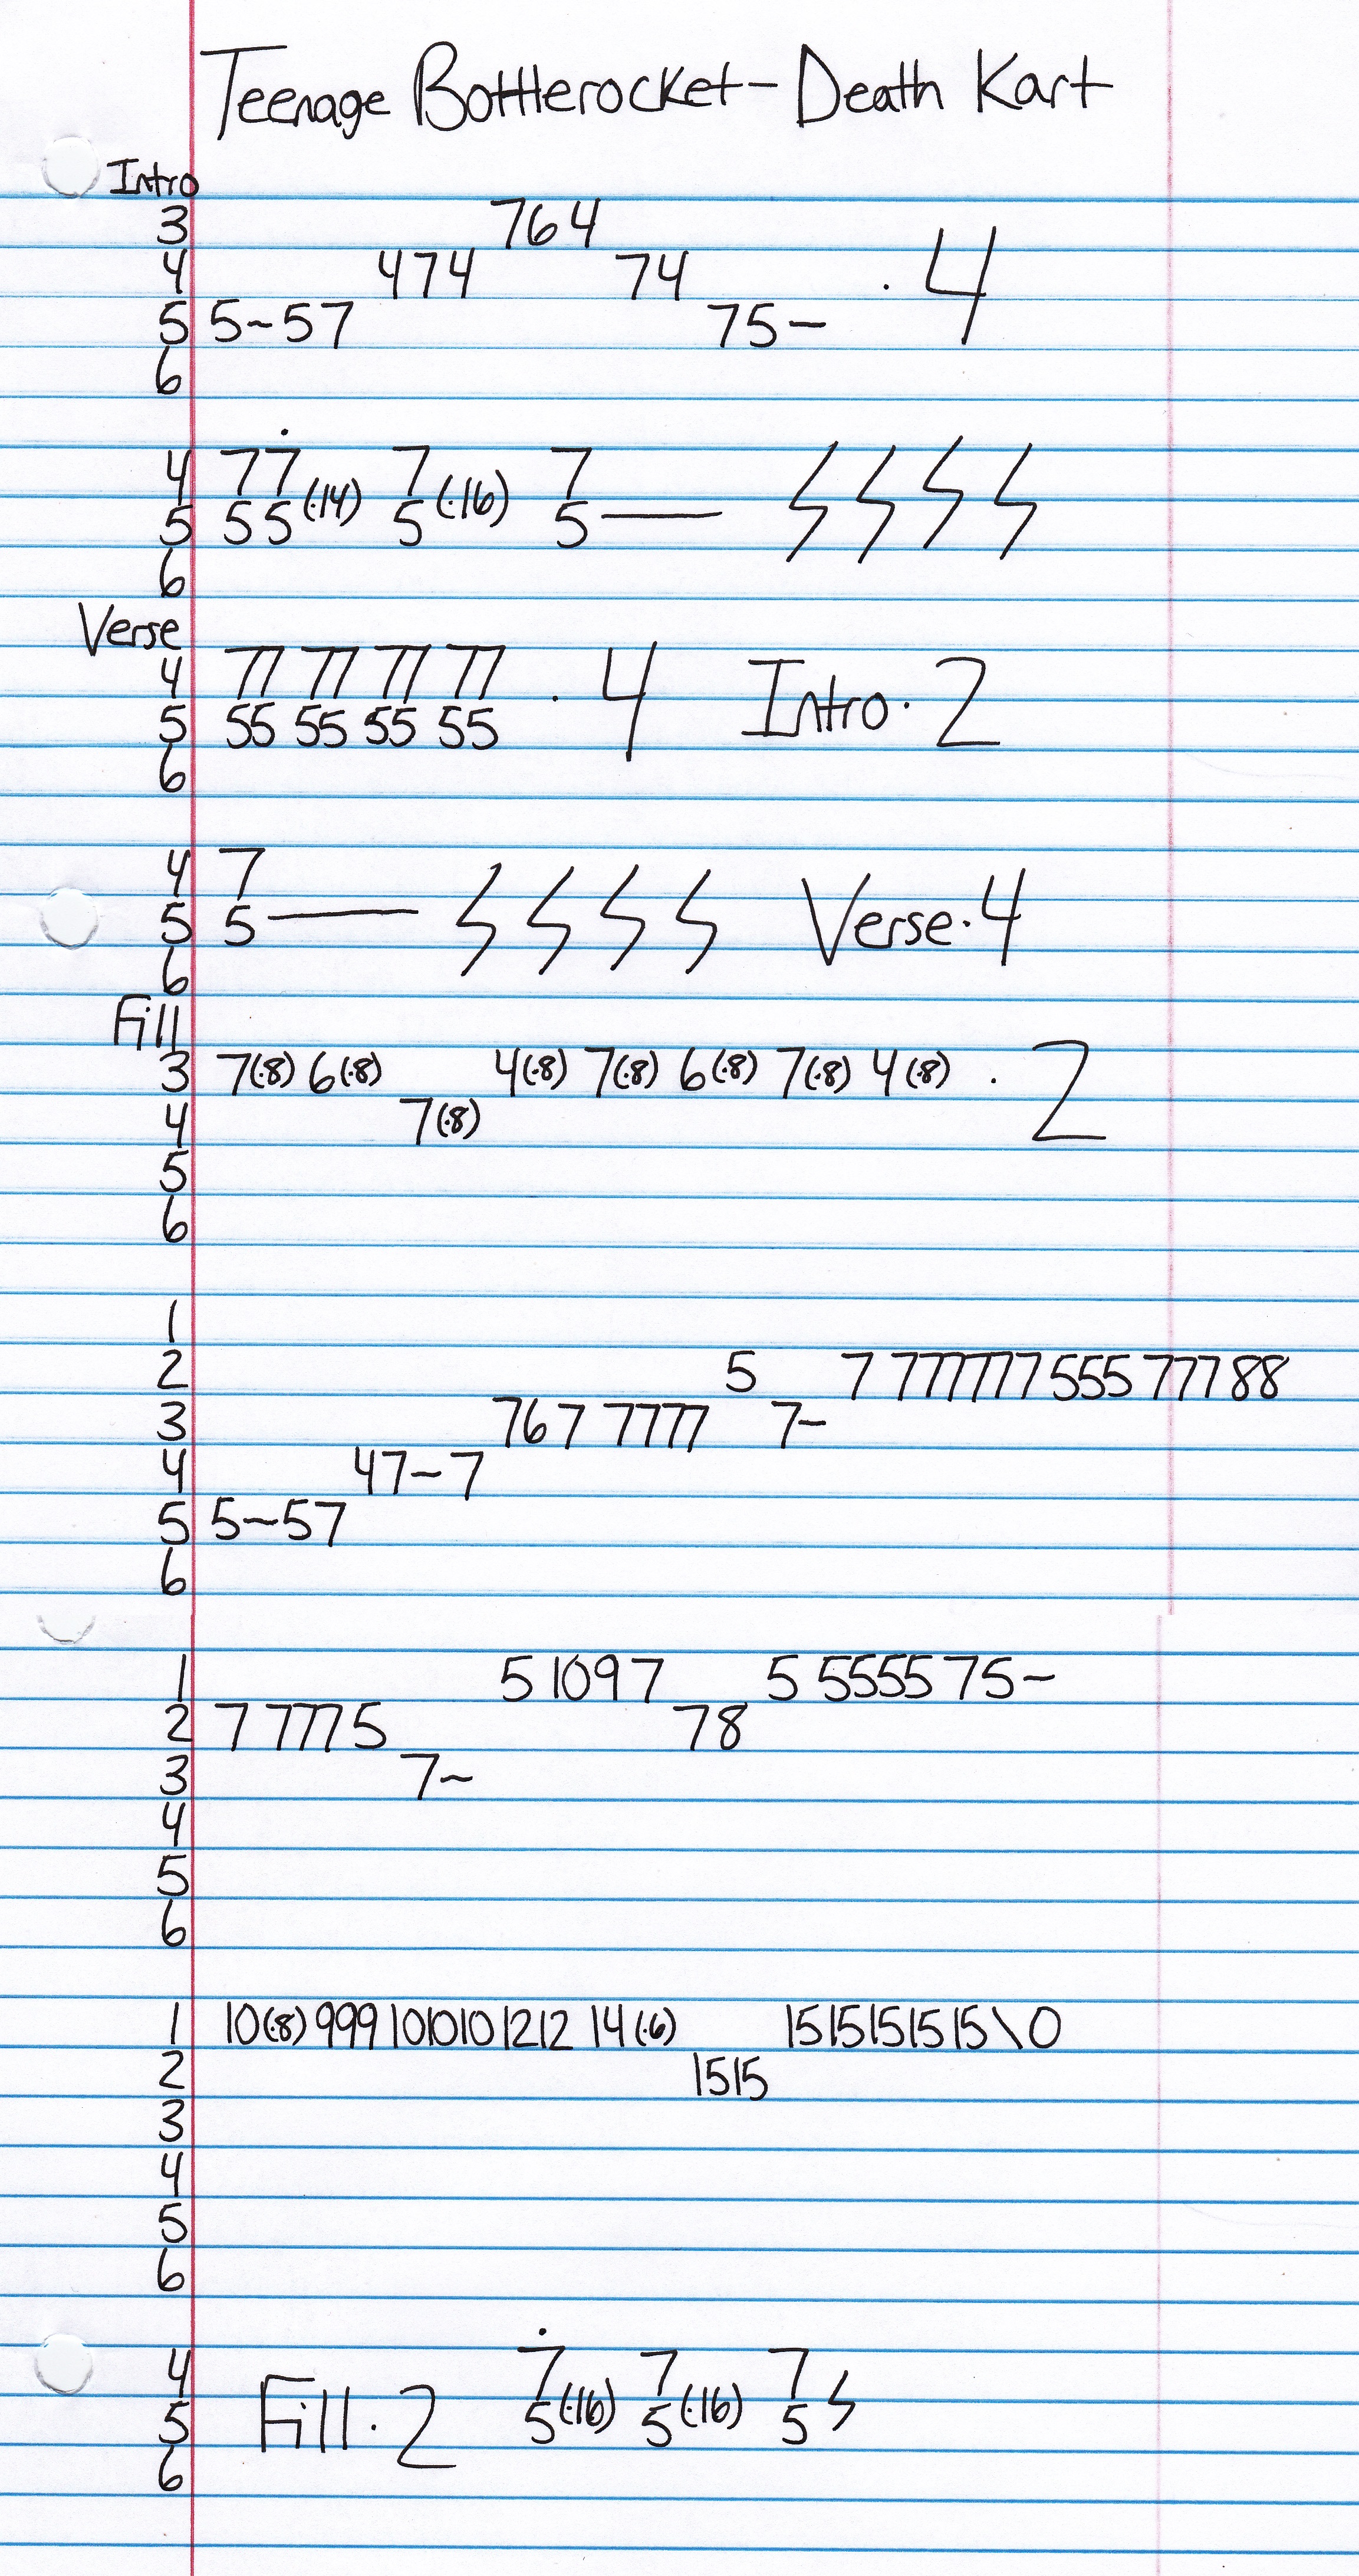 Teenage Bottlerocket - Death Kart
Intro
3 764
4 474 74 · 4
5 5~57 75~
6
4 77 7 7
5 55(·14) 5(·16) 5—
6
Verse
4 77 77 77 77 · 4 Intro · 2
5 55 55 55 55
6
4 7
5 5— Verse · 4
6
Fill
3 7(·8) 6(·8) 4(·8) 7(·8) 6(·8) 7(·8) 4(·8) · 2
4 7(·8)
5
6
1
2 5 7 777777 555 777 88
3 767 7777 7~
4 47~7
5 5~57
6
1 5 10 9 7 5 5555 75~
2 7 777 5 78
3 7~
4
5
6
1 10(·8) 999 101010 1212 14(·6) 1515151515\0
2 1515
3
4
5
6
4 7 7 7
5 Fill · 2 5(·16) 5(·16) 5
6